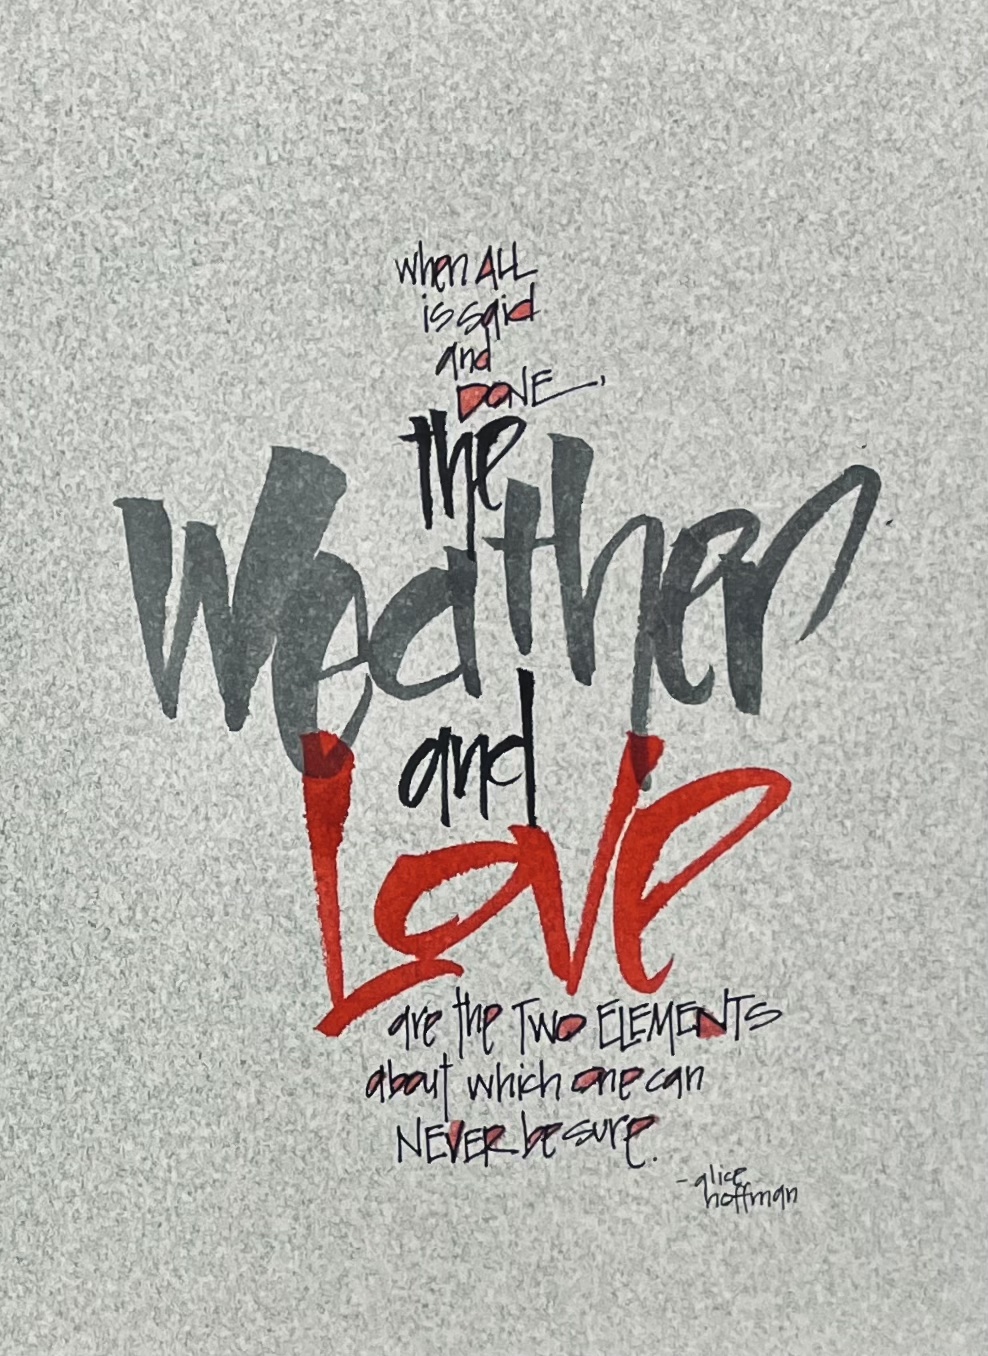 when ALL
is said
and
DONE,
the
Weather
and
Love
are the TWO ELEMENTS
about which one can
NEVER be sure.
- alice
hoffman